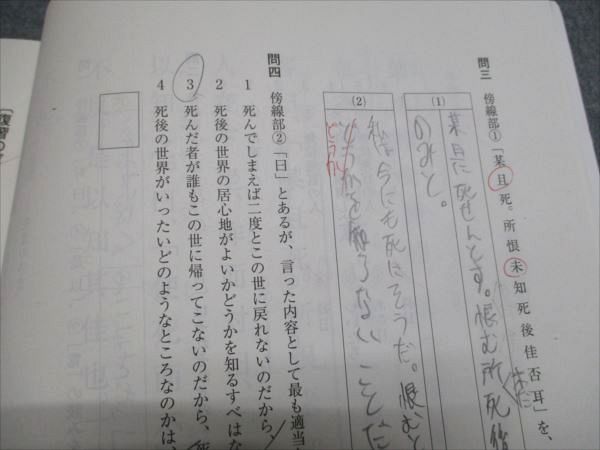 問三　傍線部①「某且死。所恨未知死後佳否耳」を、
(1)
某且に死せんとす。恨む所死後
のみと。
(2)
私は今にも死にそうだ。恨むと
かを知らないことだ
どうか
問四　傍線部②「曰」とあるが、言った内容として最も適当
1　死んでしまえば二度とこの世に戻れないのだから
2　死後の世界の居心地がよいかどうかを知るすべはな
3　死んだ者が誰もこの世に帰ってこないのだから、死
4　死後の世界がいったいどのようなところなのかは、